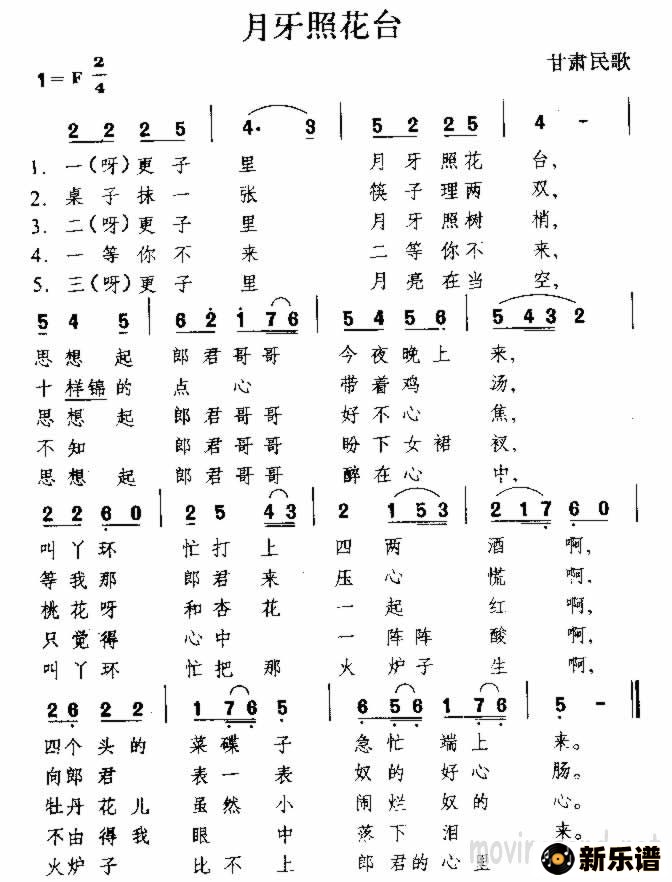 月牙照花台
1=F 2/4
甘肃民歌
2 2 2 5 | 4· 3 | 5 2 2 5 | 4 - |
1. 一(呀)更子里 月牙照花台,
2. 桌子抹一张 筷子理两双,
3. 二(呀)更子里 月牙照树梢,
4. 一等你不来 二等你不来,
5. 三(呀)更子里 月亮在当空,
5 4 5 | 6 2 1 7 6 | 5 4 5 6 | 5 4 3 2 |
思想起 郎君哥哥 今夜晚上来,
十样锦的点心 带着鸡汤,
思想起 郎君哥哥 好不心焦,
不知 郎君哥哥 盼下女裙衩,
思想起 郎君哥哥 醉在心中,
2 2 6 0 | 2 5 4 3 | 2 1 5 3 | 2 1 7 6 0 |
叫丫环 忙打上 四两酒啊,
等我那 郎君来 压心慌啊,
桃花呀 和杏花 一起红啊,
只觉得 心中 一阵阵酸啊,
叫丫环 忙把那 火炉子生啊,
2 6 2 2 | 1 7 6 5 | 6 5 6 1 7 6 | 5 - ‖
四个头的菜碟子 急忙端上来。
向郎君 表一表 奴的好心肠。
牡丹花儿虽然小 闹烂奴的心。
不由得我眼中 落下泪来。
火炉子 比不上 郎君的心里
新乐谱